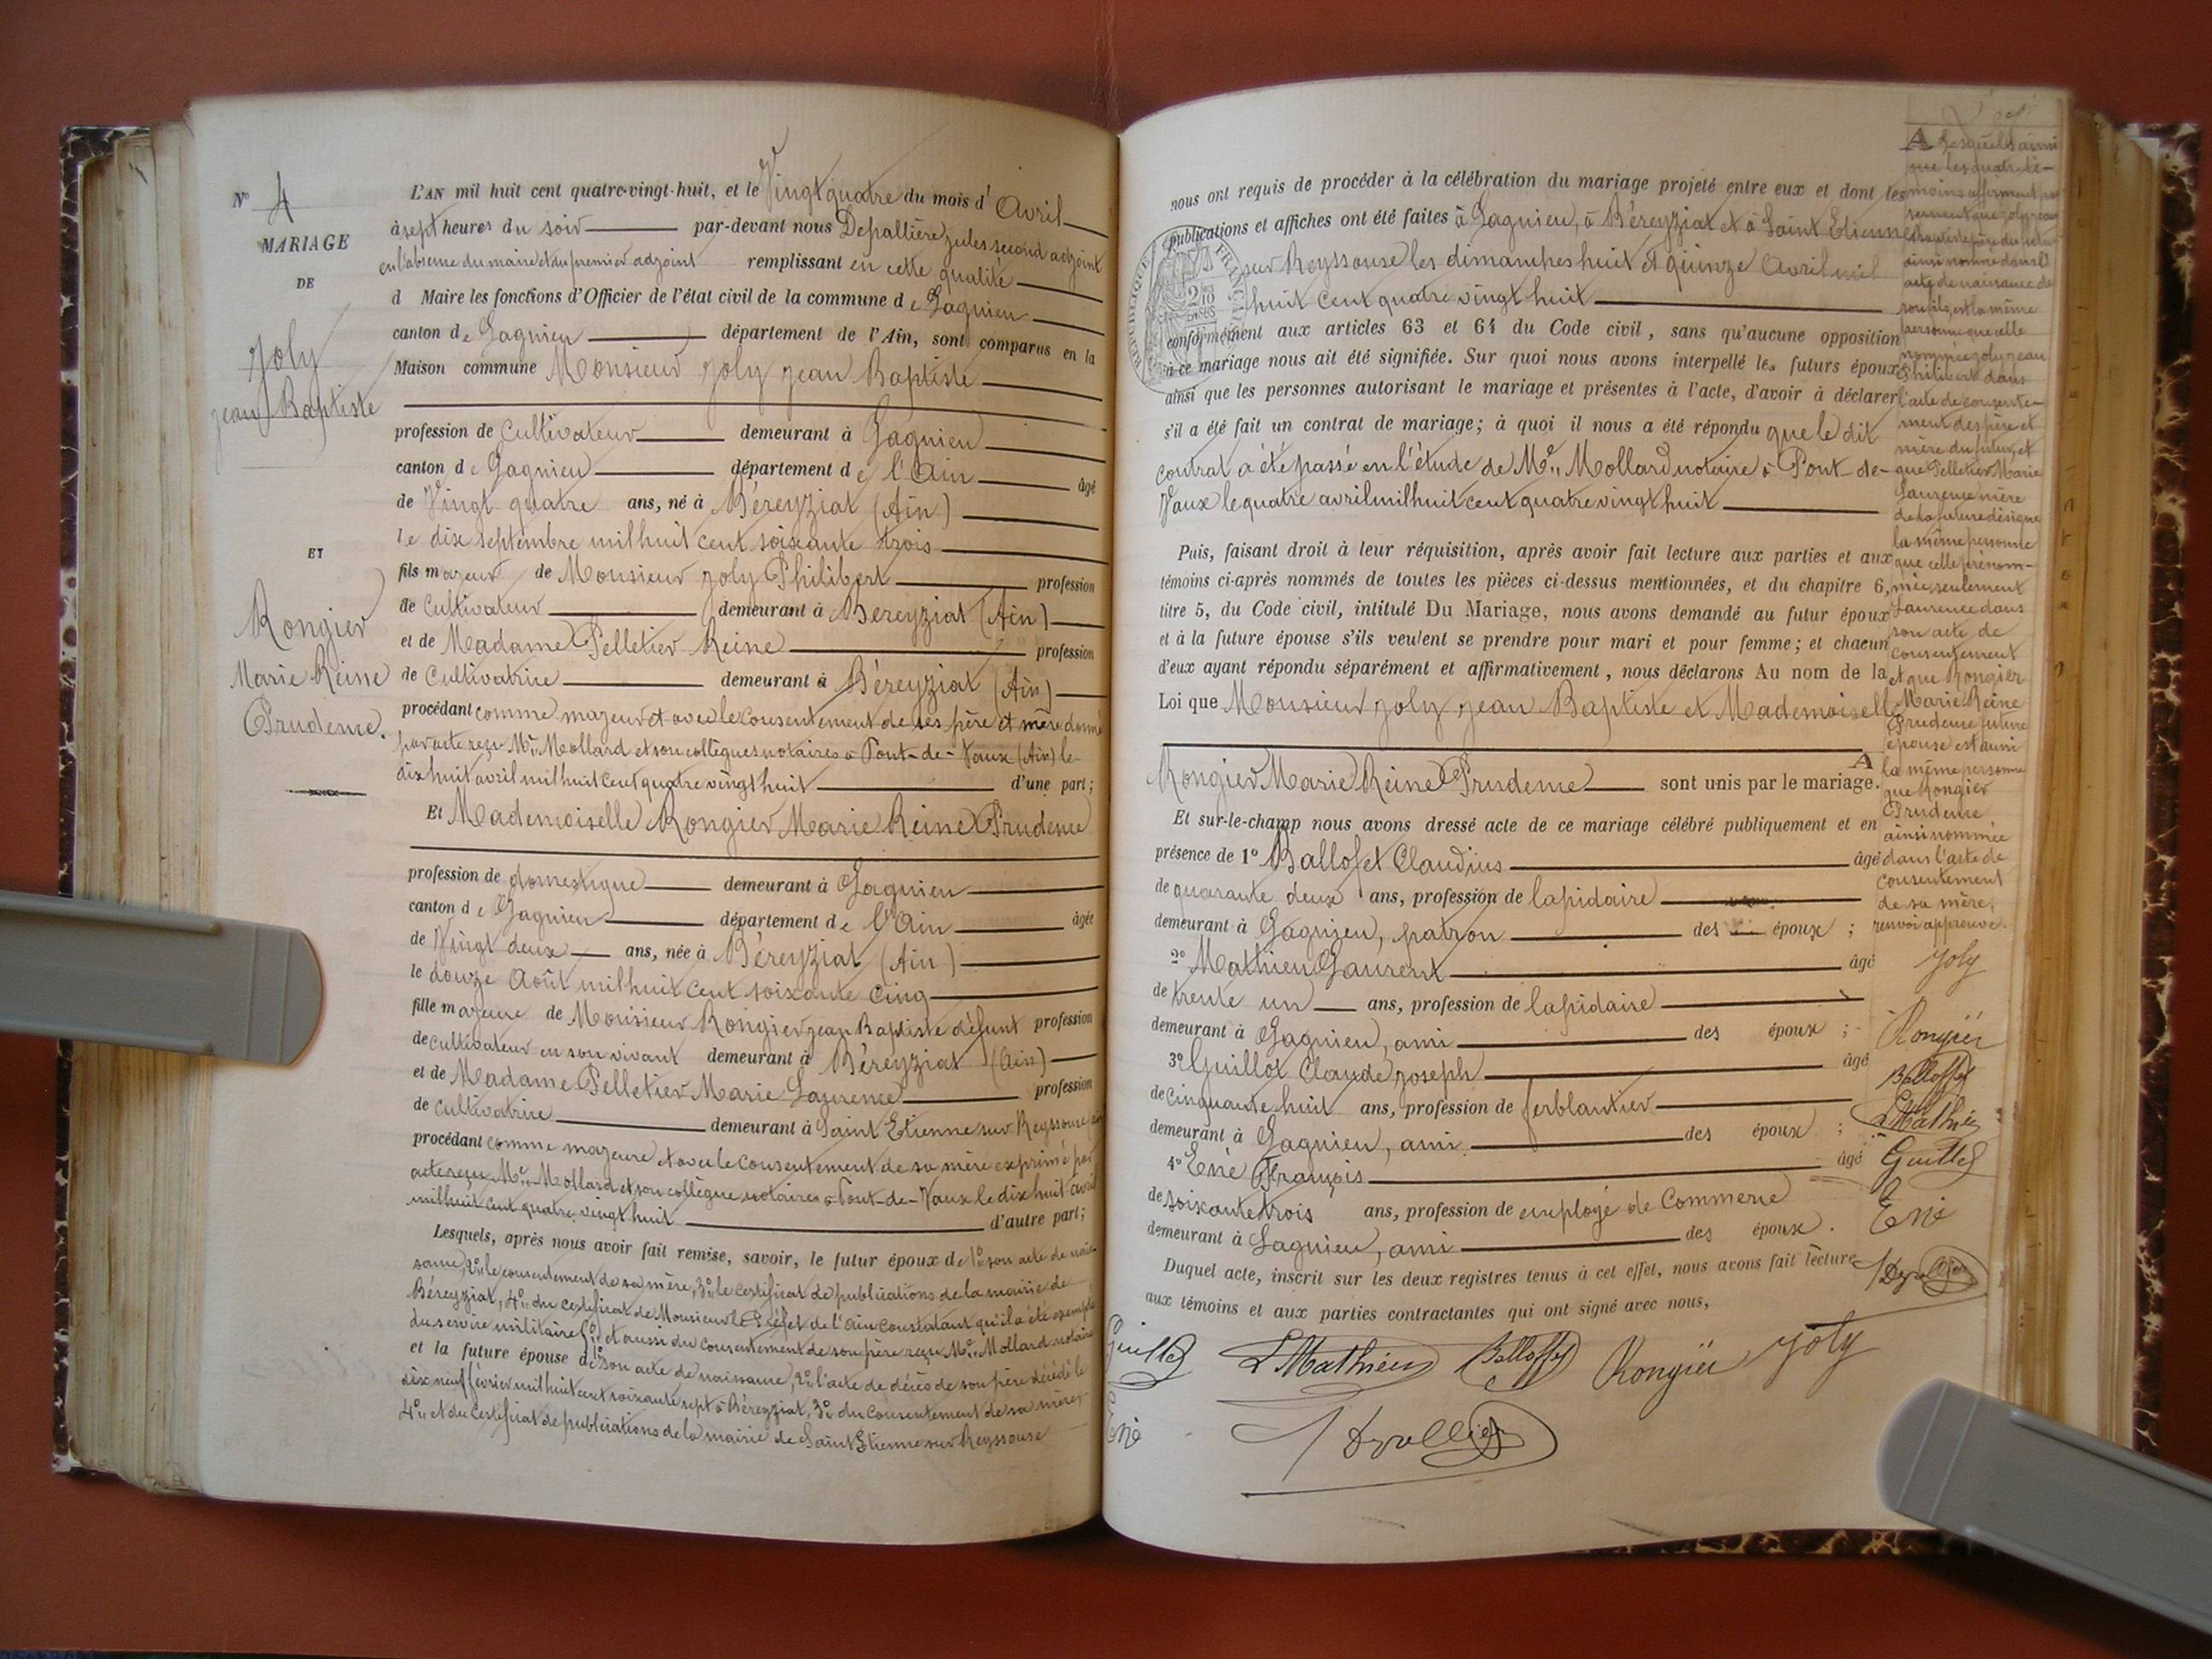 N° 4
MARIAGE
DE
Joly
Jean Baptiste
ET
Rongier
Marie Reine
Prudence.
L'AN mil huit cent quatre-vingt-huit, et le Vingt quatre du mois d' Avril
à sept heures du soir par-devant nous Depallière Jules second adjoint
en l'absence du maire et du premier adjoint remplissant en cette qualité
d Maire les fonctions d'Officier de l'état civil de la commune de Lagnieu
canton de Lagnieu département de l'Ain, sont comparus en la
Maison commune Monsieur Joly Jean Baptiste
profession de Cultivateur demeurant à Lagnieu
canton de Lagnieu département de l'Ain âgé
de Vingt quatre ans, né à Béreyziat (Ain)
le dix septembre mil huit cent soixante trois
fils majeur de Monsieur Joly Philibert profession
de Cultivateur demeurant à Béreyziat (Ain)
et de Madame Pelletier Reine profession
de Cultivatrice demeurant à Béreyziat (Ain)
procédant comme majeur et avec le consentement de ses père et mère donné
par acte reçu Me. Mollard et son collègue notaires à Pont-de-Vaux (Ain) le
dix huit avril mil huit cent quatre vingt huit d'une part;
Et Mademoiselle Rongier Marie Reine Prudence
profession de domestique demeurant à Lagnieu
canton de Lagnieu département de l'Ain âgée
de Vingt deux ans, née à Béreyziat (Ain)
le douze Août mil huit cent soixante cinq
fille majeure de Monsieur Rongier Jean Baptiste défunt profession
de cultivateur en son vivant demeurant à Béreyziat (Ain)
et de Madame Pelletier Marie Laurence profession
de cultivatrice demeurant à Saint Etienne sur Reyssouze
procédant comme majeure et avec le consentement de sa mère exprimé par
acte reçu Me. Mollard et son collègue notaires à Pont-de-Vaux le dix huit avril
mil huit cent quatre vingt huit d'autre part;
Lesquels, après nous avoir fait remise, savoir, le futur époux de 1° son acte de nais-
sance, 2° le consentement de sa mère, 3° le certificat de publications de la mairie de
Béreyziat, 4° du certificat de Monsieur le Préfet de l'Ain constatant qu'il a été exempté
du service militaire et aussi du consentement de son père reçu Me. Mollard notaire
et la future épouse de 1° son acte de naissance, 2° l'acte de décès de son père décédé le
dix neuf février mil huit cent soixante sept à Béreyziat, 3° du consentement de sa mère
4° et du certificat de publications de la mairie de Saint Etienne sur Reyssouze
nous ont requis de procéder à la célébration du mariage projeté entre eux et dont les
publications et affiches ont été faites à Lagnieu, à Béreyziat et à Saint Etienne
sur Reyssouze les dimanches huit et quinze Avril mil
huit cent quatre vingt huit
conformément aux articles 63 et 64 du Code civil, sans qu'aucune opposition
à ce mariage nous ait été signifiée. Sur quoi nous avons interpellé les futurs époux
ainsi que les personnes autorisant le mariage et présentes à l'acte, d'avoir à déclarer
s'il a été fait un contrat de mariage; à quoi il nous a été répondu que le dit
contrat a été passé en l'étude de Me. Mollard notaire à Pont-de-
Vaux le quatre avril mil huit cent quatre vingt huit
Puis, faisant droit à leur réquisition, après avoir fait lecture aux parties et aux
témoins ci-après nommés de toutes les pièces ci-dessus mentionnées, et du chapitre 6,
titre 5, du Code civil, intitulé Du Mariage, nous avons demandé au futur époux
et à la future épouse s'ils veulent se prendre pour mari et pour femme; et chacun
d'eux ayant répondu séparément et affirmativement, nous déclarons Au nom de la
Loi que Monsieur Joly Jean Baptiste et Mademoiselle
Rongier Marie Reine Prudence sont unis par le mariage. A
Et sur-le-champ nous avons dressé acte de ce mariage célébré publiquement et en
présence de 1° Balloffet Claudius âgé
de quarante deux ans, profession de lapidaire
demeurant à Lagnieu, patron des époux ;
2° Mathieu Laurent âgé
de trente un ans, profession de lapidaire
demeurant à Lagnieu, ami des époux ;
3° Guillot Claude Joseph âgé
de cinquante huit ans, profession de ferblantier
demeurant à Lagnieu, ami des époux ;
4° Ené François âgé
de soixante trois ans, profession de employé de Commerce
demeurant à Lagnieu, ami des époux.
Duquel acte, inscrit sur les deux registres tenus à cet effet, nous avons fait lecture
aux témoins et aux parties contractantes qui ont signé avec nous,
Guillot L Mathieu Balloffet Rongier Joly
Ené
A Lesquels ainsi
que les quatre té-
moins affirment par
serment que Joly Jean
Baptiste père du futur
ainsi nommé dans l'
acte de naissance de
son fils est la même
personne que celle
nommée Joly Jean
Philibert dans
l'acte de consente-
ment des père et
mère du futur, et
que Pelletier Marie
Laurence mère
de la future désigne
la même personne
que celle prénom-
mée seulement
Laurence dans
son acte de
consentement
et que Rongier
Marie Reine
Prudence future
épouse est aussi
la même personne
que Rongier
Prudence
ainsi nommée
dans l'acte de
consentement
de sa mère,
renvoi approuvé.
Joly
Rongier
Balloffet
L Mathieu
Guillot
Ené